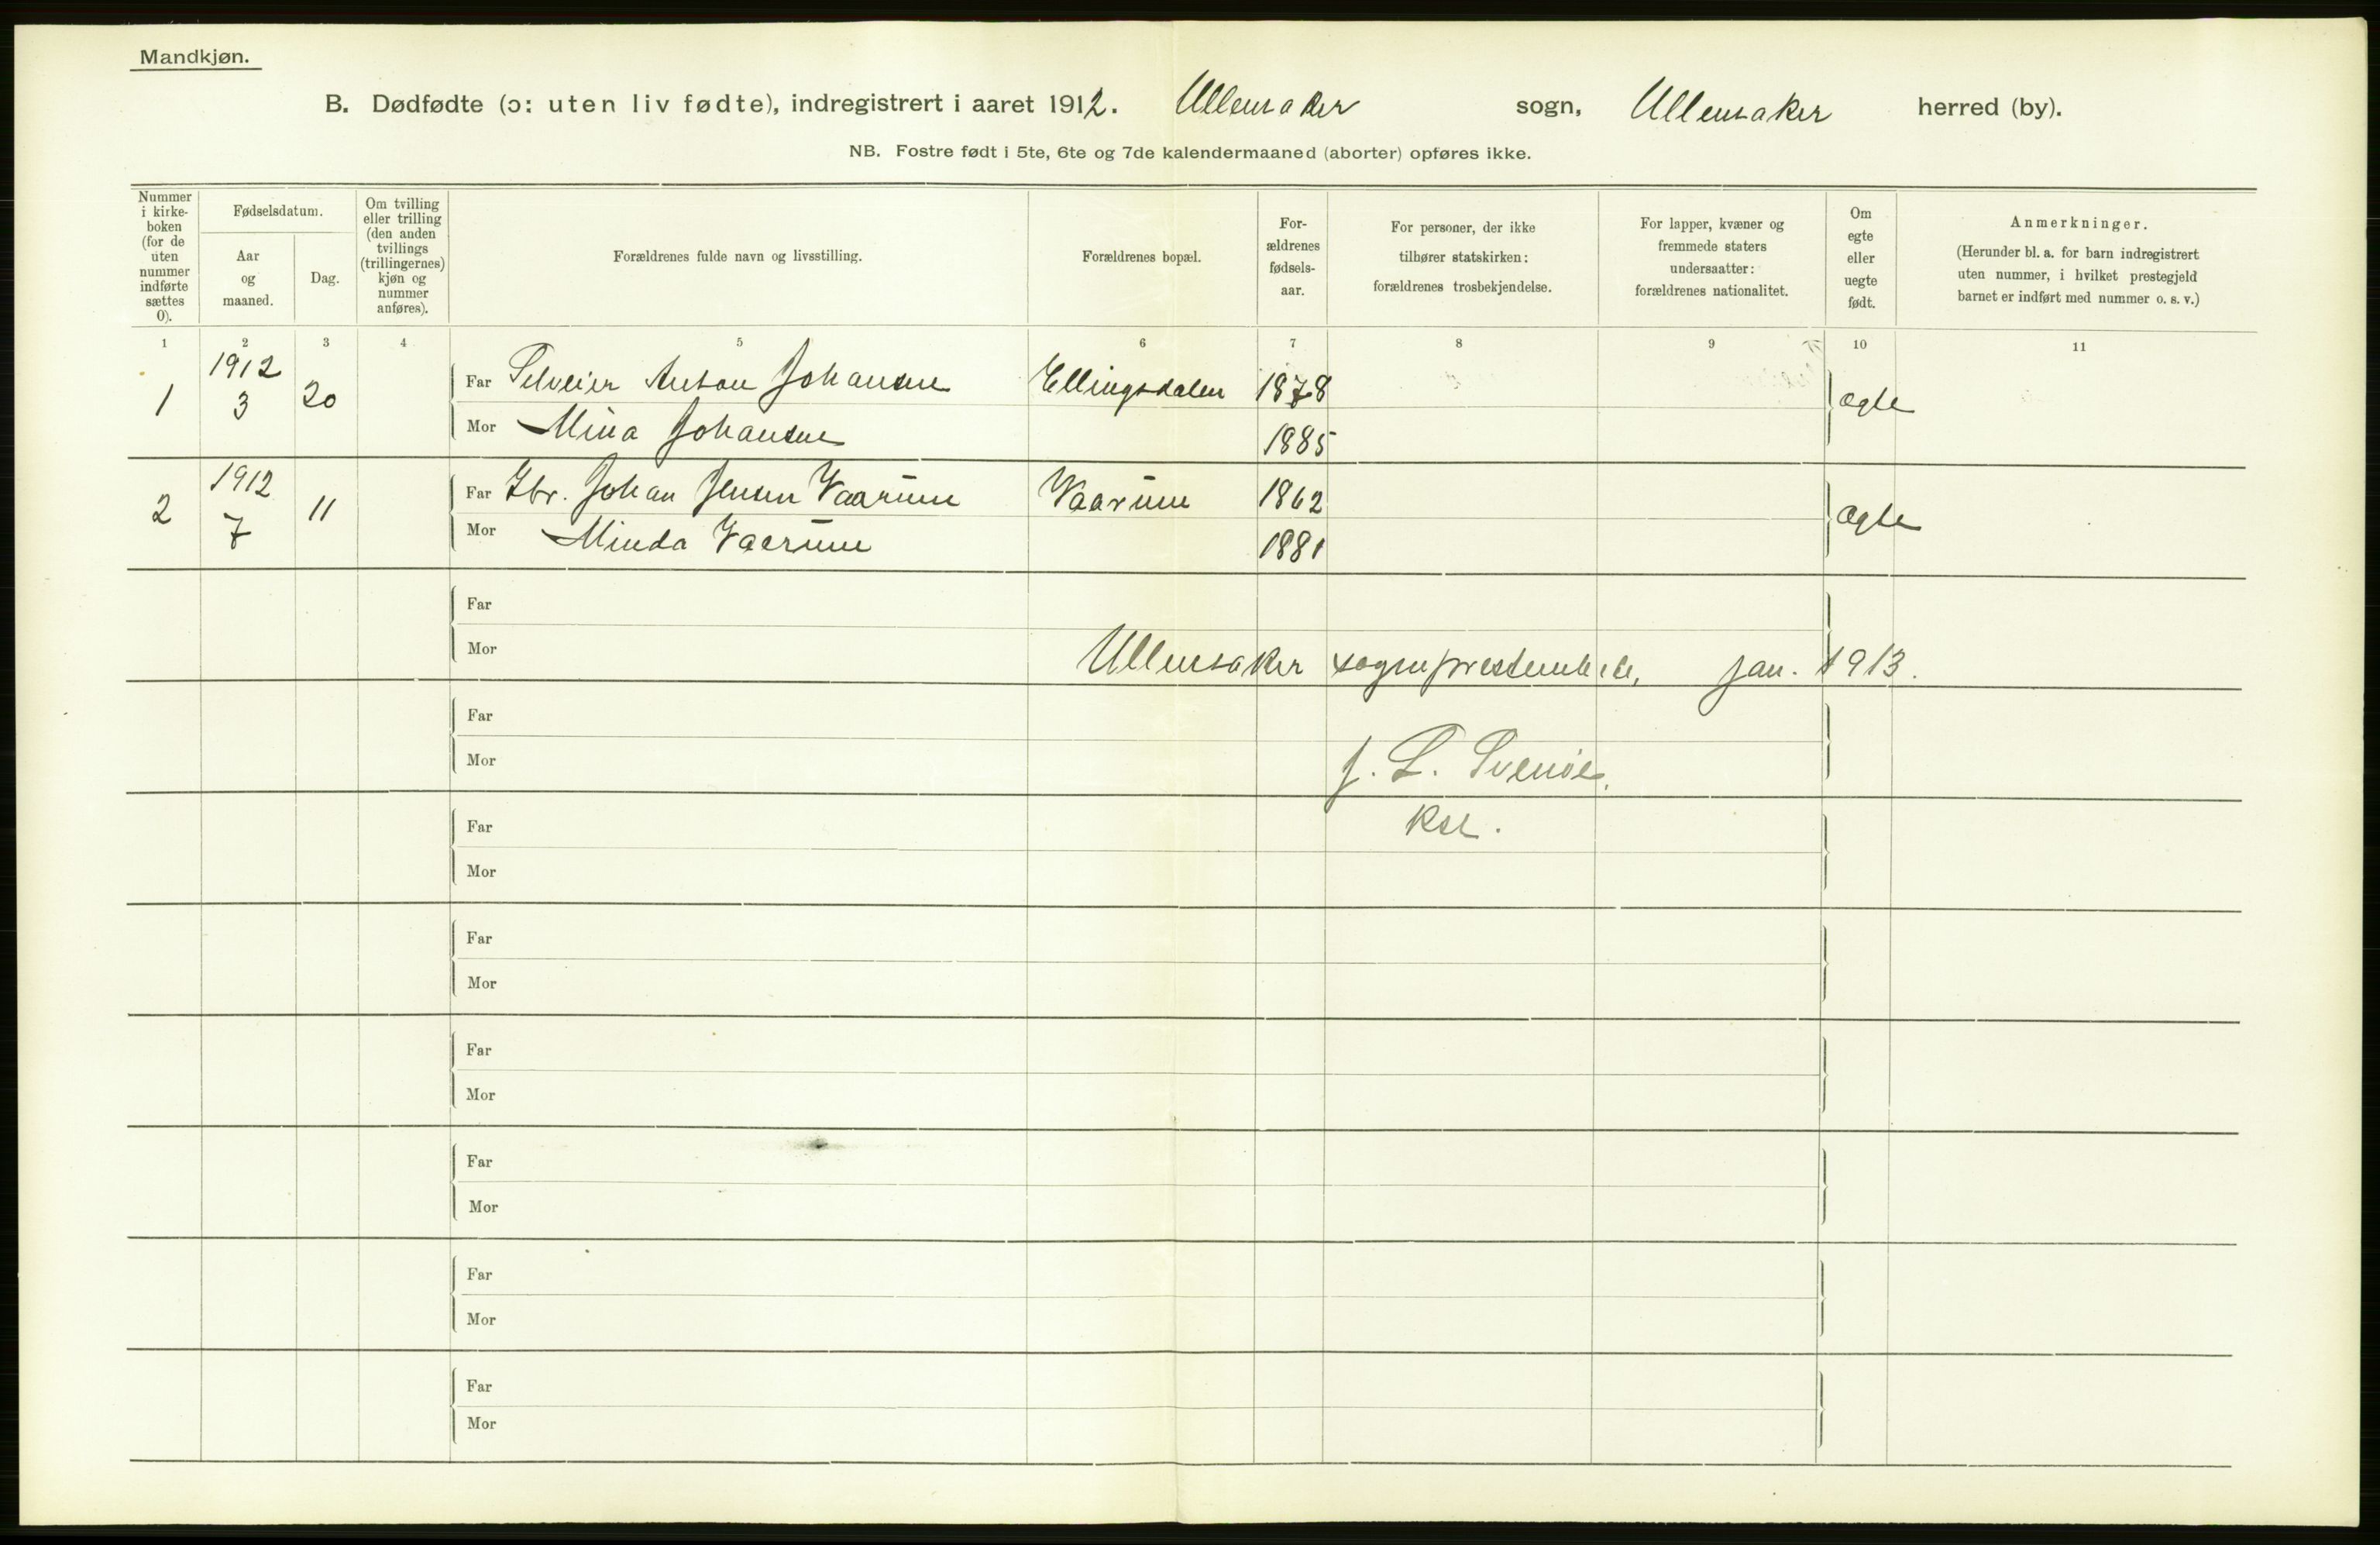 Mandkjøn.
B. Dødfødte (ɔ: uten liv fødte), indregistrert i aaret 1912. Ullensaker sogn, Ullensaker herred (by).
NB. Fostre født i 5te, 6te og 7de kalendermaaned (aborter) opføres ikke.
Nummer
i kirke-
boken
(for de
uten
nummer
indførte
sættes
0).
Fødselsdatum.
Aar
og
maaned.
Dag.
Om tvilling
eller trilling
(den anden
tvillings
(trillingernes)
kjøn og
nummer
anføres).
Forældrenes fulde navn og livsstilling.
Forældrenes bopæl.
For-
ældrenes
fødsels-
aar.
For personer, der ikke
tilhører statskirken:
forældrenes trosbekjendelse.
For lapper, kvæner og
fremmede staters
undersaatter:
forældrenes nationalitet.
Om
egte
eller
uegte
født.
Anmerkninger.
(Herunder bl. a. for barn indregistrert
uten nummer, i hvilket prestegjeld
barnet er indført med nummer o. s. v.)
1 2 3 4 5 6 7 8 9 10 11
1 1912 3 20 Far Anton Johansen Ellingsdalen 1878 ægte
Mor Mina Johansen 1885
2 1912 7 11 Far Gbr. Johan Jensen Vaarum Vaarum 1862 ægte
Mor Minda Vaarum 1881
Far
Mor Ullensaker sogneprestembede, jan. 1913.
Far
Mor
Far
Mor
Far
Mor
Far
Mor
Far
Mor
Far
Mor
Far
Mor